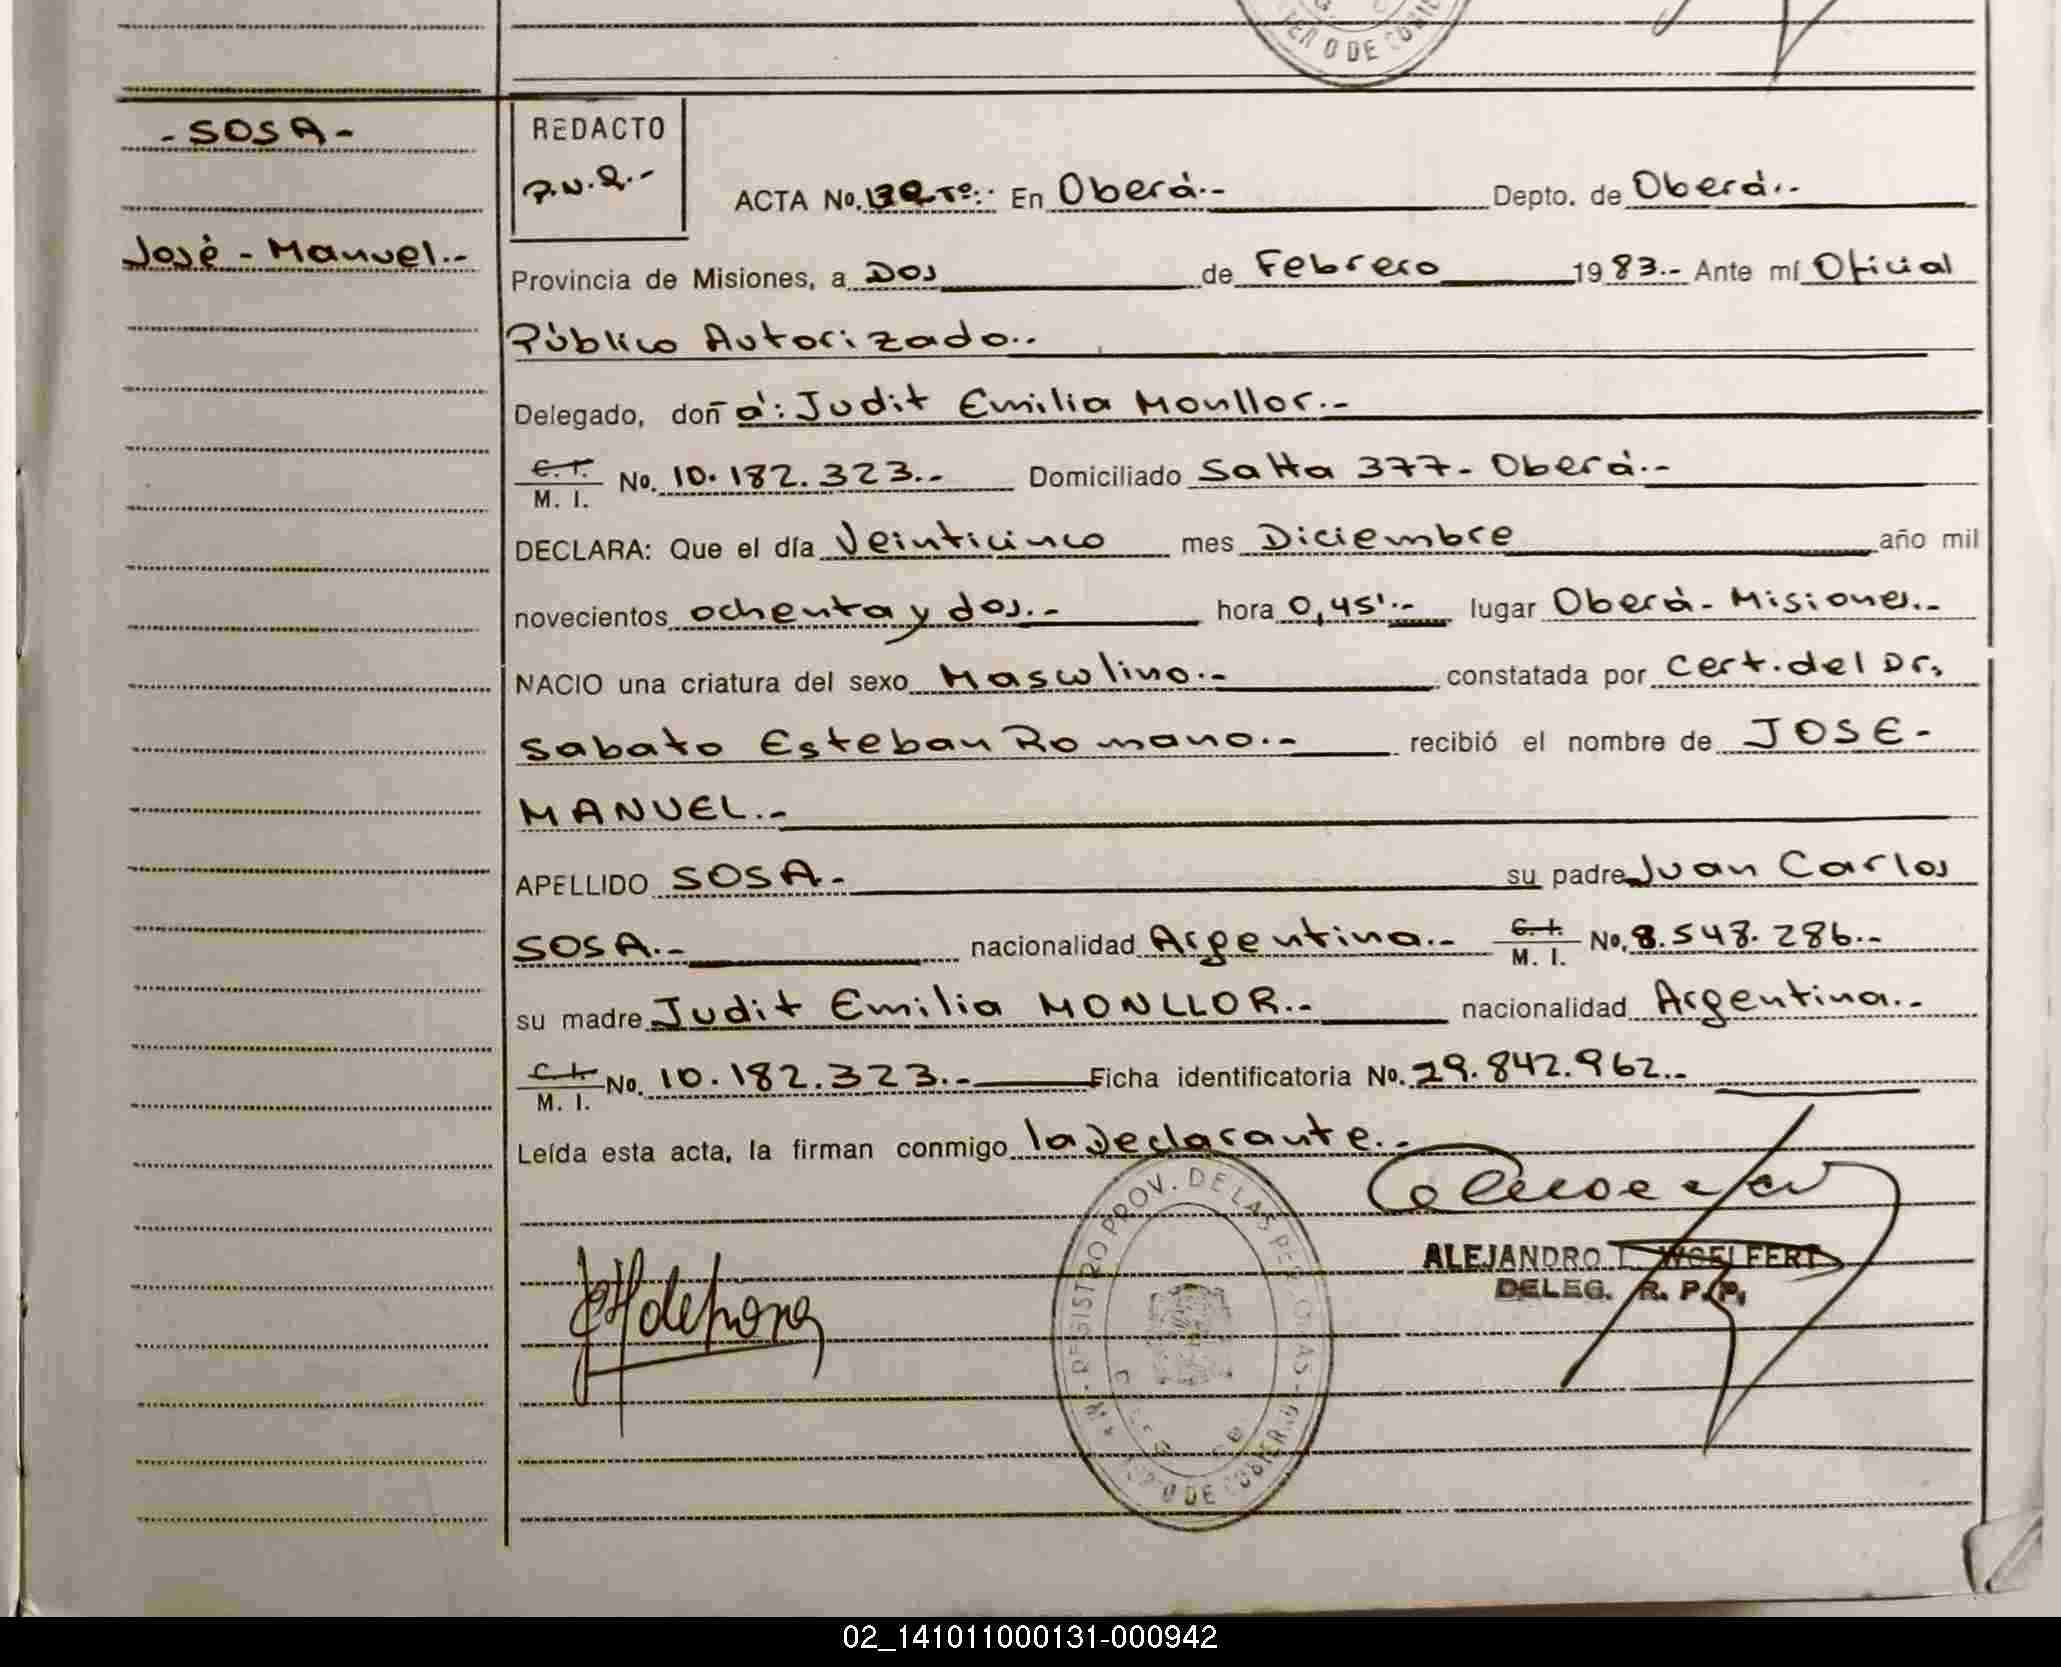 - SOSA -
José - Manuel.-
REDACTO
P.N.Q.-
ACTA No. En Oberá.- Depto. de Oberá.-
Provincia de Misiones, a Dos de Febrero 1983.- Ante mí Oficial
Público Autorizado.-
Delegado, doña: Judit Emilia Monllor.-
C.I. M. I. No. 10.182.323.- Domiciliado Salta 377- Oberá.-
DECLARA: Que el día Veinticinco mes Diciembre año mil
novecientos ochenta y dos.- hora 0,45'.- lugar Oberá- Misiones.-
NACIO una criatura del sexo Masculino.- constatada por Cert. del Dr.
Sabato Esteban Romano.- recibió el nombre de JOSE-
MANUEL.-
APELLIDO SOSA.- su padre Juan Carlos
SOSA.- nacionalidad Argentina.- C.I. M. I. No. 8.548.286.-
su madre Judit Emilia MONLLOR.- nacionalidad Argentina.-
C.I. M. I. No. 10.182.323.- Ficha identificatoria No. 29.842.962.-
Leída esta acta, la firman conmigo la declarante.-
REGISTRO PROV. DE LAS PERSONAS
ALEJANDRO L. WOELFERT
DELEG. R. P. P.
02_141011000131-000942